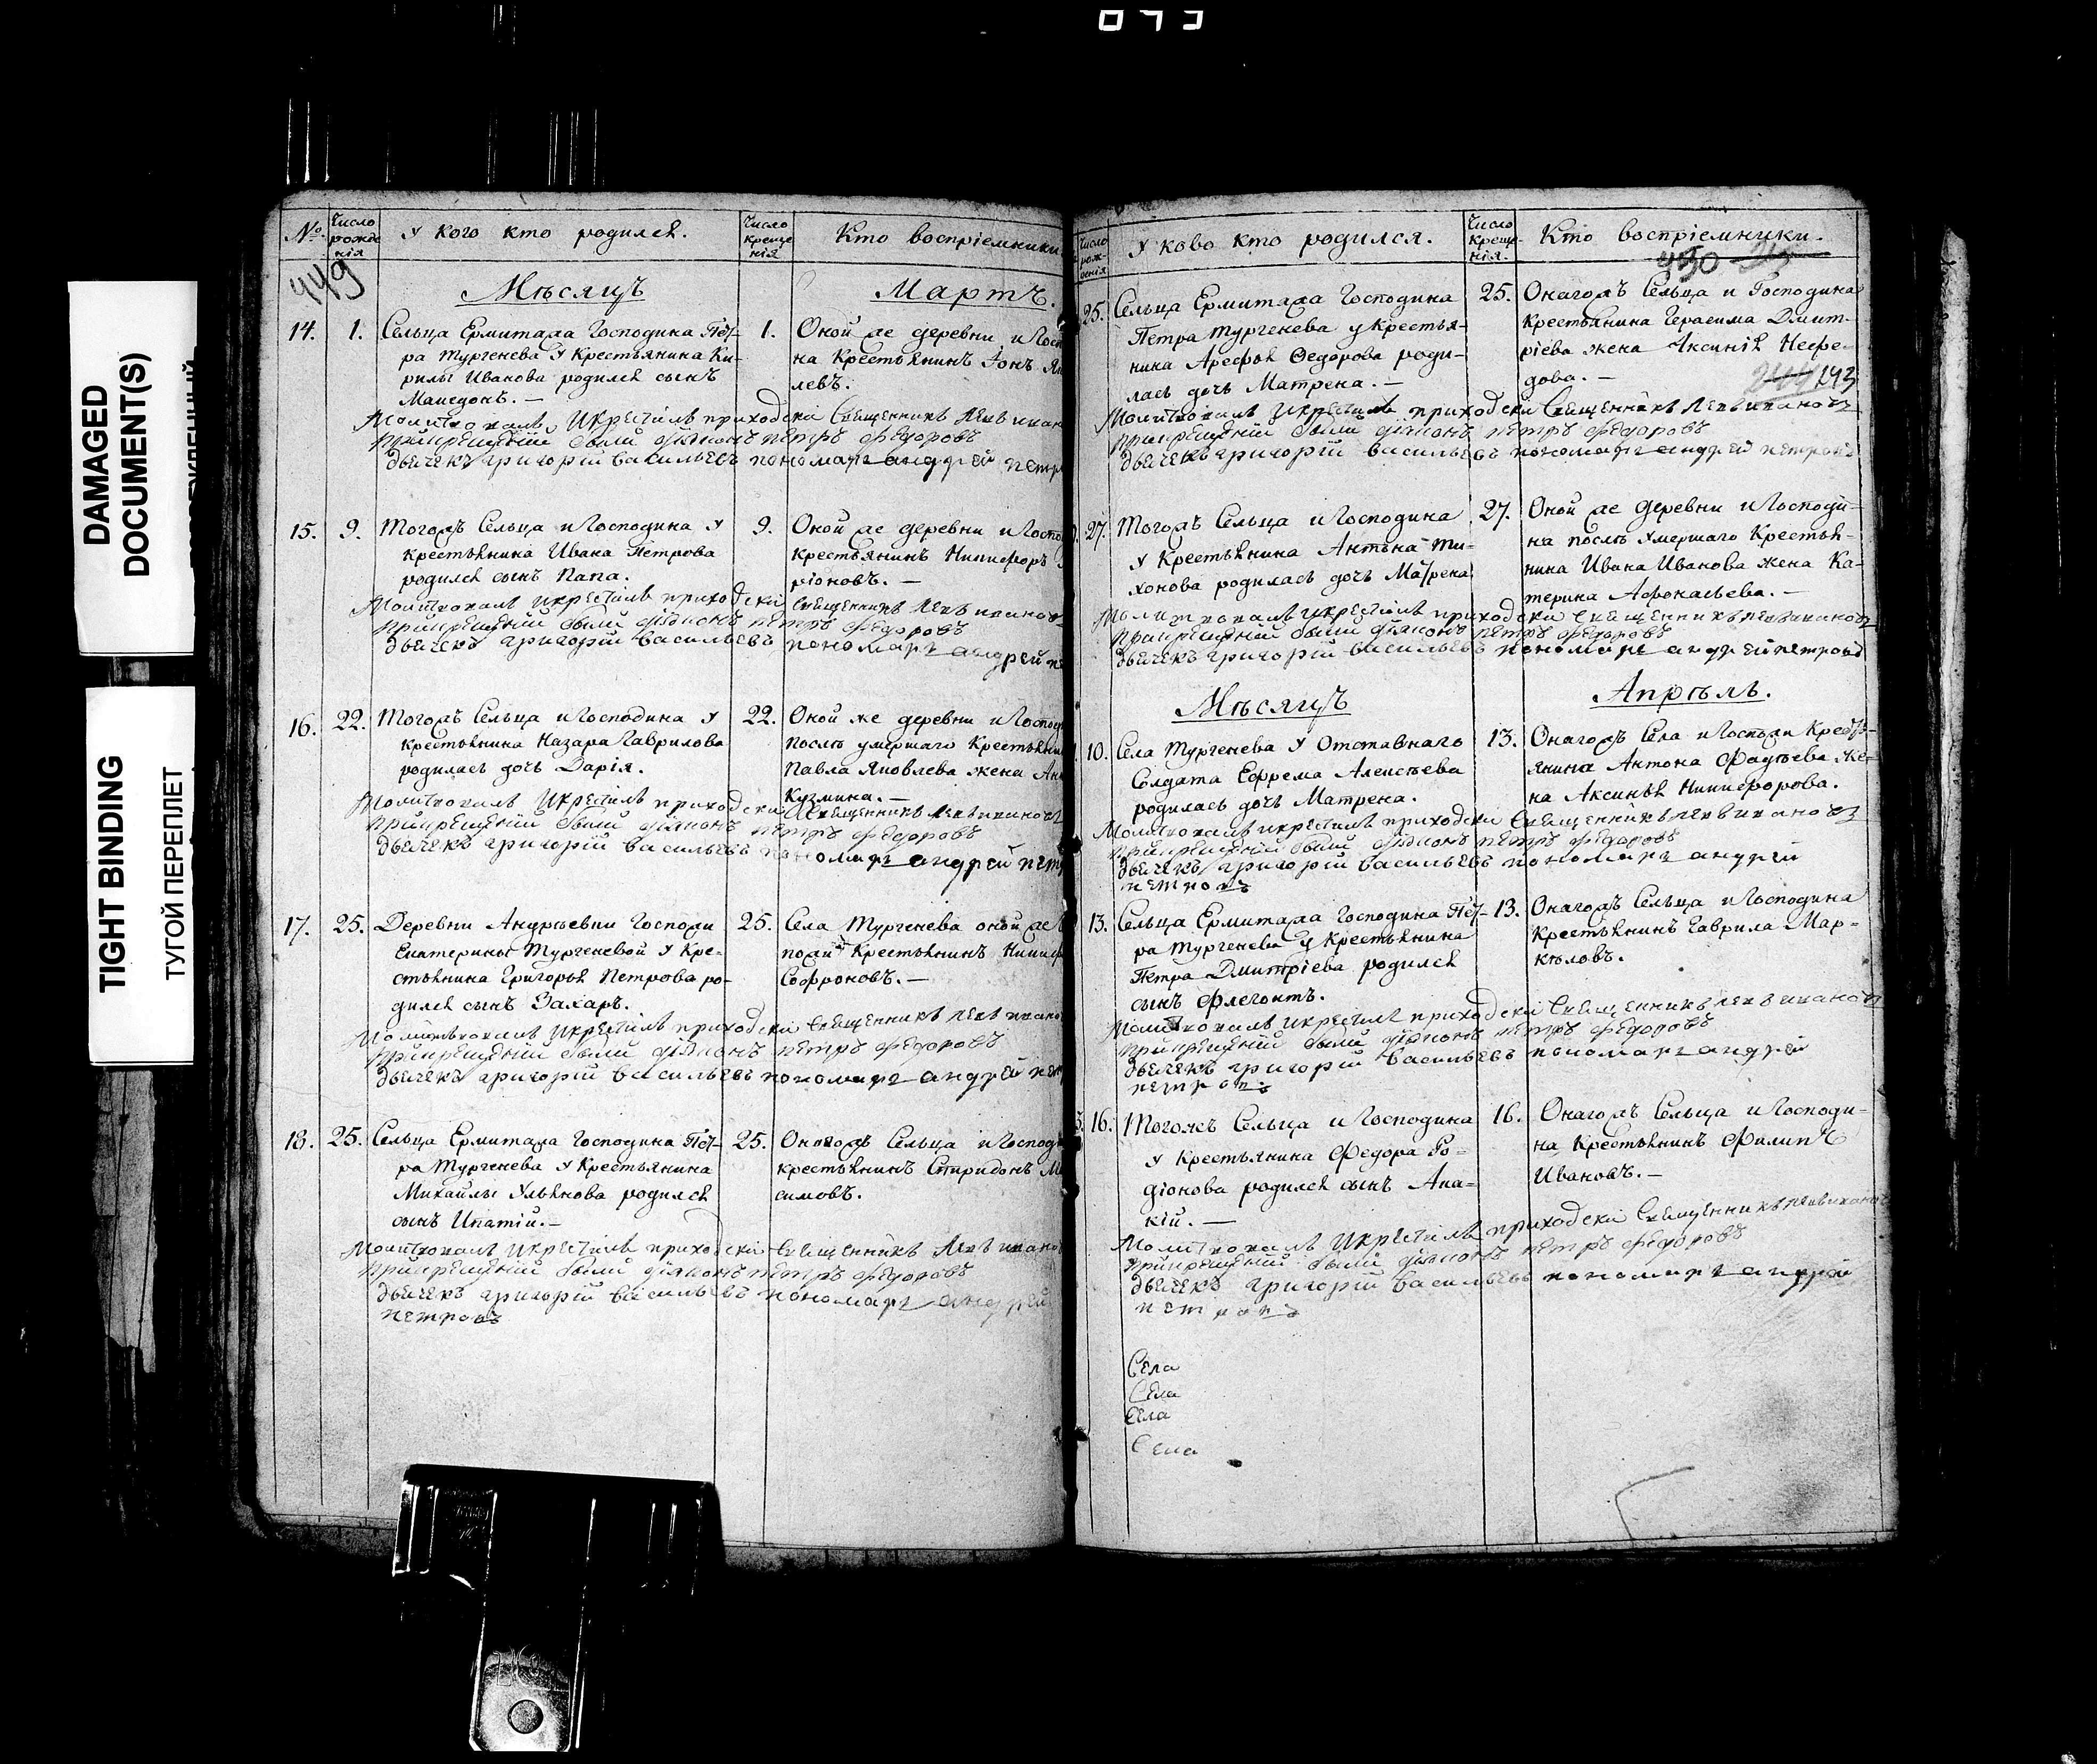 DAMAGED
DOCUMENT(S)
TIGHT BINDING
ТУГОЙ ПЕРЕПЛЕТ
№. Число рожде нія У кого кто родился. Число креще нія Кто воспріемники
449
Мѣсяцъ Мартъ.
14. 1. Сельца Ермитажа Господина Пет-
ра Тургенева У Крестьянина Ки-
рилы Иванова родился сынъ
Македонъ. —
1. Оной же деревни и
на Крестьянинъ Іонъ
левъ.
Молитвовалъ И крестилъ приходски Священникъ Левъ
При крещеніи были діаконъ петръ федоровъ
дьячекъ григорій васильевъ пономарь андрей
15. 9. Тогожъ Сельца и Господина У
крестьянина Ивана Петрова
родился сынъ Папа.
9. Оной же деревни и
крестьянинъ Никифоръ
ріоновъ. —
Молитвовалъ И крестилъ приходски Священникъ Левъ
При крещеніи были діаконъ петръ федоровъ
дьячекъ григорій васильевъ пономарь андрей
16. 22. Тогожъ Сельца и Господина У
крестьянина Назара Гаврилова
родилась дочь Дарія.
22. Оной же деревни и
послѣ умершаго
Павла Яковлева жена
Кузмина. —
Молитвовалъ И крестилъ приходски Священникъ Левъ
При крещеніи были діаконъ петръ федоровъ
дьячекъ григорій васильевъ пономарь андрей
17. 25. Деревни Андреевки Госпожи
Екатерины Тургеневой У Кре-
стьянина Григорья Петрова ро-
дился сынъ Захаръ.
25. Села Тургенева оной же
пожи Крестьянинъ
Софроновъ. —
Молитвовалъ И крестилъ приходски Священникъ Левъ
При крещеніи были діаконъ петръ федоровъ
дьячекъ григорій васильевъ пономарь андрей
18. 25. Сельца Ермитажа Господина Пет-
ра Тургенева У Крестьянина
Михайлы Ульянова родился
сынъ Ипатій. —
25. Онагожъ Сельца и
крестьянинъ Спиридонъ
симовъ.
Молитвовалъ И крестилъ приходски Священникъ Левъ
При крещеніи были діаконъ петръ федоровъ
дьячекъ григорій васильевъ пономарь андрей
петровъ
Число рож- денія У ково кто родился. Число Креще- нія. Кто воспріемники.
450
25. Сельца Ермитажа Господина
Петра Тургенева у Крестья-
нина Арефья Ѳедорова роди-
лась дочь Матрена. —
25. Онагожъ Сельца и Господина
Крестьянина Герасима Дмит-
ріева жена Аксинія Нефе-
дова. —
243
Молитвовалъ И крестилъ приходски Священникъ Левъ ивановъ
При крещеніи были діаконъ петръ федоровъ
дьячекъ григорій васильевъ пономарь андрей петровъ
27. Тогожъ Сельца и Господина
У Крестьянина Антона Ти-
хонова родилась дочь Матрена
27. Оной же деревни и Господи-
на послѣ умершаго Крестья-
нина Ивана Иванова жена Ка-
терина Афонасьева. —
Молитвовалъ И крестилъ приходски Священникъ Левъ ивановъ
При крещеніи были діаконъ петръ федоровъ
дьячекъ григорій васильевъ пономарь андрей петровъ
Мѣсяцъ Апрѣль.
10. Села Тургенева У Отставнаго
Солдата Ефрема Алексѣева
родилась дочь Матрена.
13. Онагожъ Села и Госпожи Кресть-
янина Антона Фадѣева же-
на Аксинья Никифорова.
Молитвовалъ И крестилъ приходски Священникъ Левъ ивановъ
При крещеніи были діаконъ петръ федоровъ
дьячекъ григорій васильевъ пономарь андрей
петровъ
13. Сельца Ермитажа Господина Пет-
ра Тургенева У Крестьянина
Петра Дмитріева родился
сынъ Флегонтъ.
13. Онагожъ Сельца и Господина
Крестьянинъ Гаврила Мар-
кѣловъ.
Молитвовалъ И крестилъ приходски Священникъ Левъ ивановъ
При крещеніи были діаконъ петръ федоровъ
дьячекъ григорій васильевъ пономарь андрей
петровъ
16. Тогожъ Сельца и Господина
У Крестьянина Федора Ро-
діонова родился сынъ Ака-
кій. —
16. Онагожъ Сельца и Господи-
на Крестьянинъ Филипъ
Ивановъ. —
Молитвовалъ И крестилъ приходски Священникъ Левъ
При крещеніи были діаконъ петръ федоровъ
дьячекъ григорій васильевъ пономарь андрей
петровъ
Села
Села
Села
Села